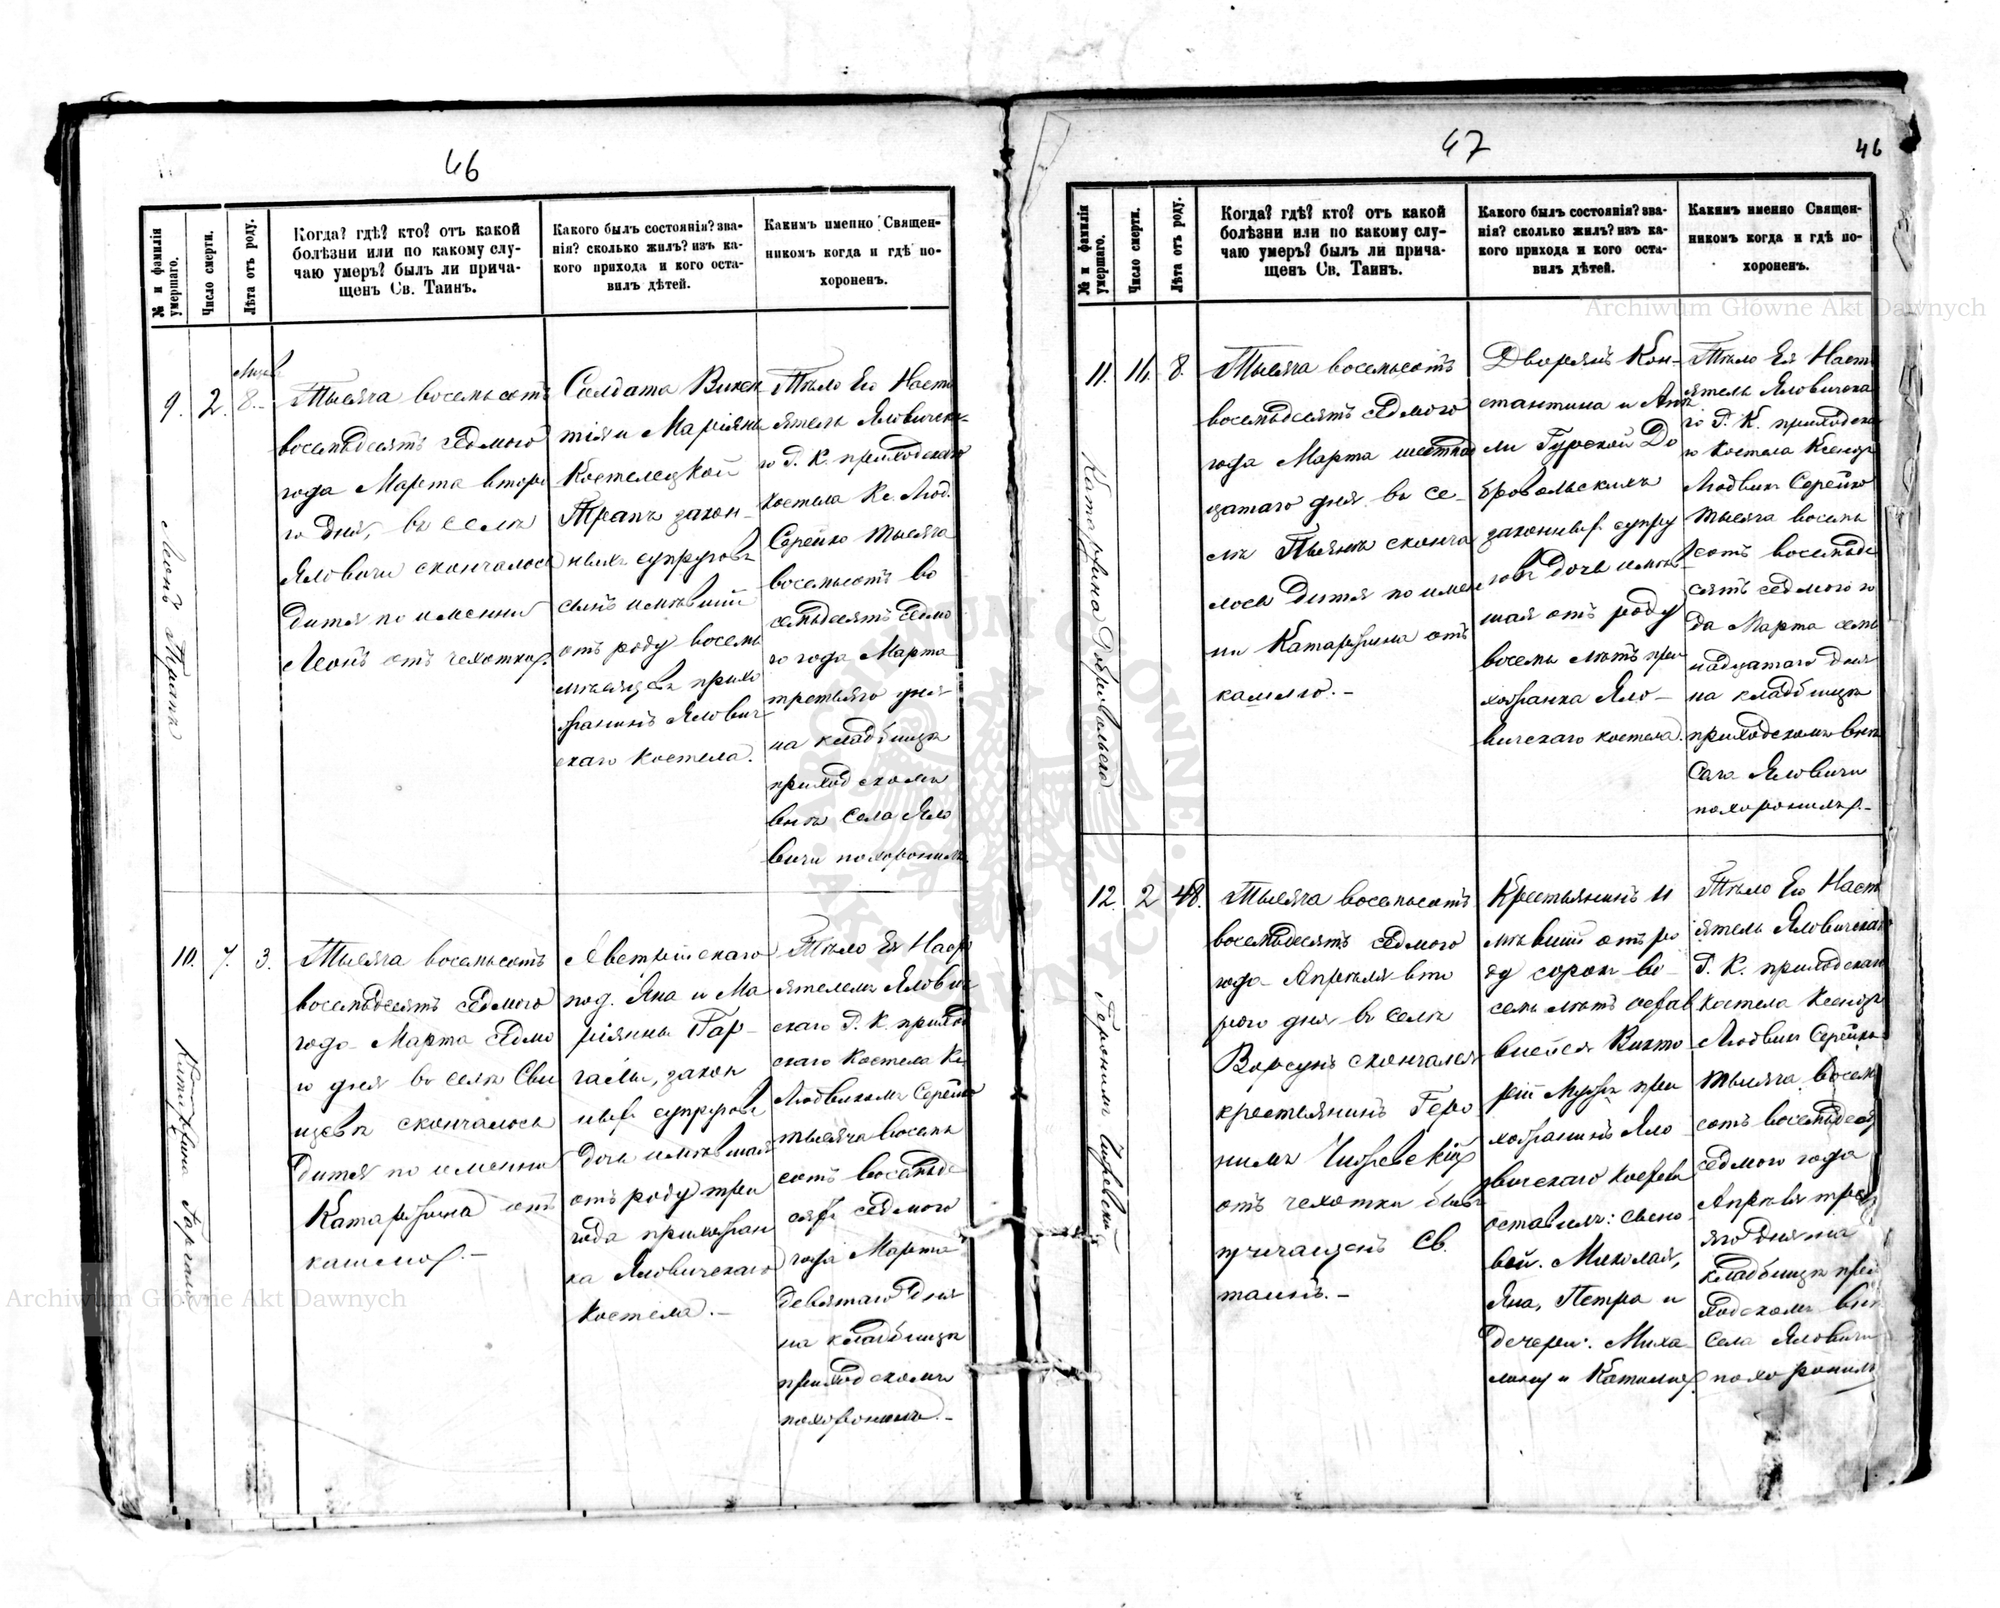 46
№ и фамилія умершаго.
Число смерти.
Лѣта отъ роду.
Когда? гдѣ? кто? отъ какой
болѣзни или по какому слу-
чаю умеръ? былъ ли прича-
щенъ Св. Таинъ.
Какого былъ состоянія? зва-
нія? сколько жилъ? изъ ка-
кого прихода и кого оста-
вилъ дѣтей.
Какимъ именно Священ-
никомъ когда и гдѣ по-
хороненъ.
9.
Леонъ
2.
8.
Тысяча восемьсотъ
восемьдесятъ седмого
года Марта второ
го дня, въ селѣ
Яловичи скончалось
дитя по имени
Леонъ отъ чехотки.
Солдата Викен
тія и Маріянны
Костелецкой
законъ-
ныхъ супруговъ
сынъ имѣвшій
отъ роду восемь
мѣсяцевъ прихо
жанинъ Ялович
скаго костела.
Тѣло Его Насто
ятель Яловичска-
го Р. К. приходскаго
костела Кс. Люд.
Серейко тысяча
восемьсотъ во
семьдесятъ седмо
го года Марта
третьяго дня
на кладбищѣ
приходскомъ
внѣ села Яло
вичи похоронилъ
10.
Катаржина
7.
3.
Тысяча восемьсотъ
восемьдесятъ седмого
года Марта седмо
го дня въ селѣ Сви
щевѣ скончалось
дитя по имени
Катаржина отъ
кашлю.-
Австрійскаго
под. Яна и Ма
ріянны Гар-
закон
ныхъ супруговъ
дочь имѣвшая
отъ роду три
года прихожан
ка Яловичскаго
костела.-
Тѣло Ея Насто
ятелемъ Ялович
скаго Р. К. приход
скаго костела Кс.
Людвикомъ Серейко
тысяча восемь
сотъ восемьде
сятъ седмого
года Марта
девятаго дня
на кладбищѣ
приходскомъ
похороненъ.-
47
46
№ и фамилія умершаго.
Число смерти.
Лѣта отъ роду.
Когда? гдѣ? кто? отъ какой
болѣзни или по какому слу-
чаю умеръ? былъ ли прича-
щенъ Св. Таинъ.
Какого былъ состоянія? зва-
нія? сколько жилъ? изъ ка-
кого прихода и кого оста-
вилъ дѣтей.
Какимъ именно Священ-
никомъ когда и гдѣ по-
хороненъ.
11.
Катаржина Добровольска
16.
8.
Тысяча восемьсотъ
восемьдесятъ седмого
года Марта шестнад
цатаго дня въ се-
лѣ Пьянѣ сконча
лось дитя по име
ни Катаржина отъ
кашлю.-
Дворянъ Кон-
стантина и Анѣ
ли Гурской До
бровольскихъ
законныхъ супру
говъ дочь имѣв-
шая отъ роду
восемь лѣтъ при
хожанка Яло-
вичскаго костела.
Тѣло Ея Насто
ятель Яловичска
го Р. К. приходска
го костела Ксендз
Людвикъ Серейко
тысяча восемь
сотъ восемьде
сятъ седмого го
да Марта семь
надцатаго дня
на кладбищѣ
приходскомъ внѣ
села Яловичи
похоронилъ.-
12.
Геронимъ
2
48.
Тысяча восемьсотъ
восемьдесятъ седмого
года Апрѣля вто
рого дня въ селѣ
Ворсунѣ скончался
крестьянинъ Геро
нимъ
отъ чехотки бывъ
причащенъ Св.
таинъ.-
Крестьянинъ и
мѣвшій отъ ро
ду сорокъ во-
семь лѣтъ остав
шейся Викто
ріи мужъ при
хожанинъ Яло
вичскаго костела
оставилъ: сыно-
вей. Миколая,
Яна, Петра и
дочери: Миха
лину и
Тѣло Его Насто
ятель Яловичскаго
Р. К. приходскаго
костела Ксендз
Людвикъ Серейко
тысяча восемь
сотъ восемьдесятъ
седмого года
Апрѣля треть
яго дня на
кладбищѣ при
ходскомъ внѣ
села Яловичи
похоронилъ
Archiwum Główne Akt Dawnych
Archiwum Główne Akt Dawnych